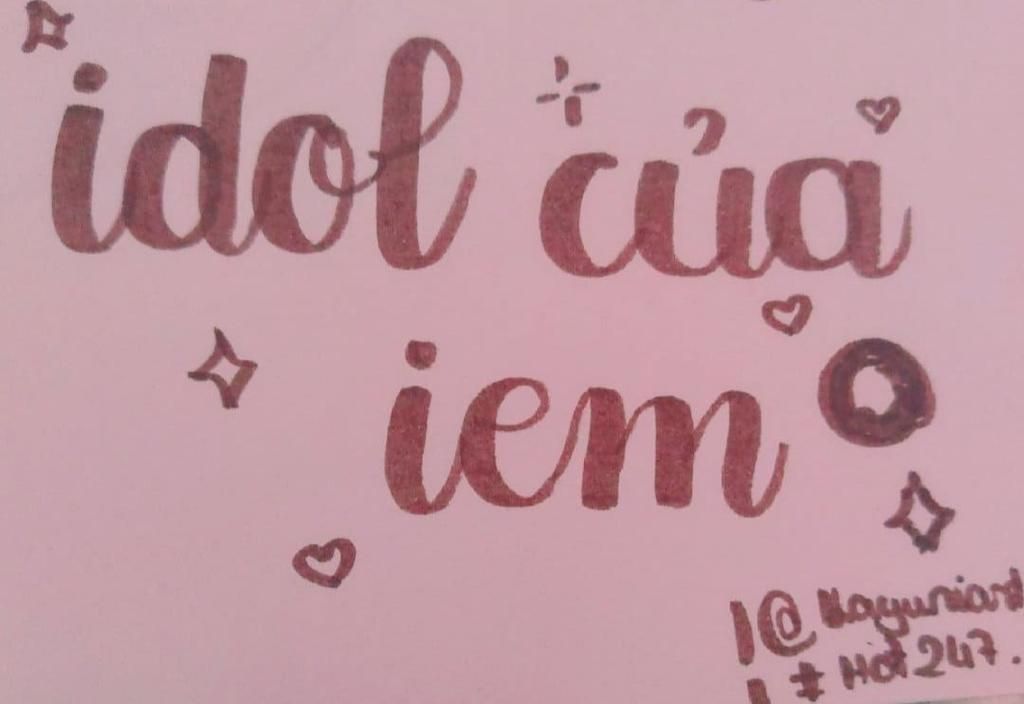 idol của
iem
#Hot247.